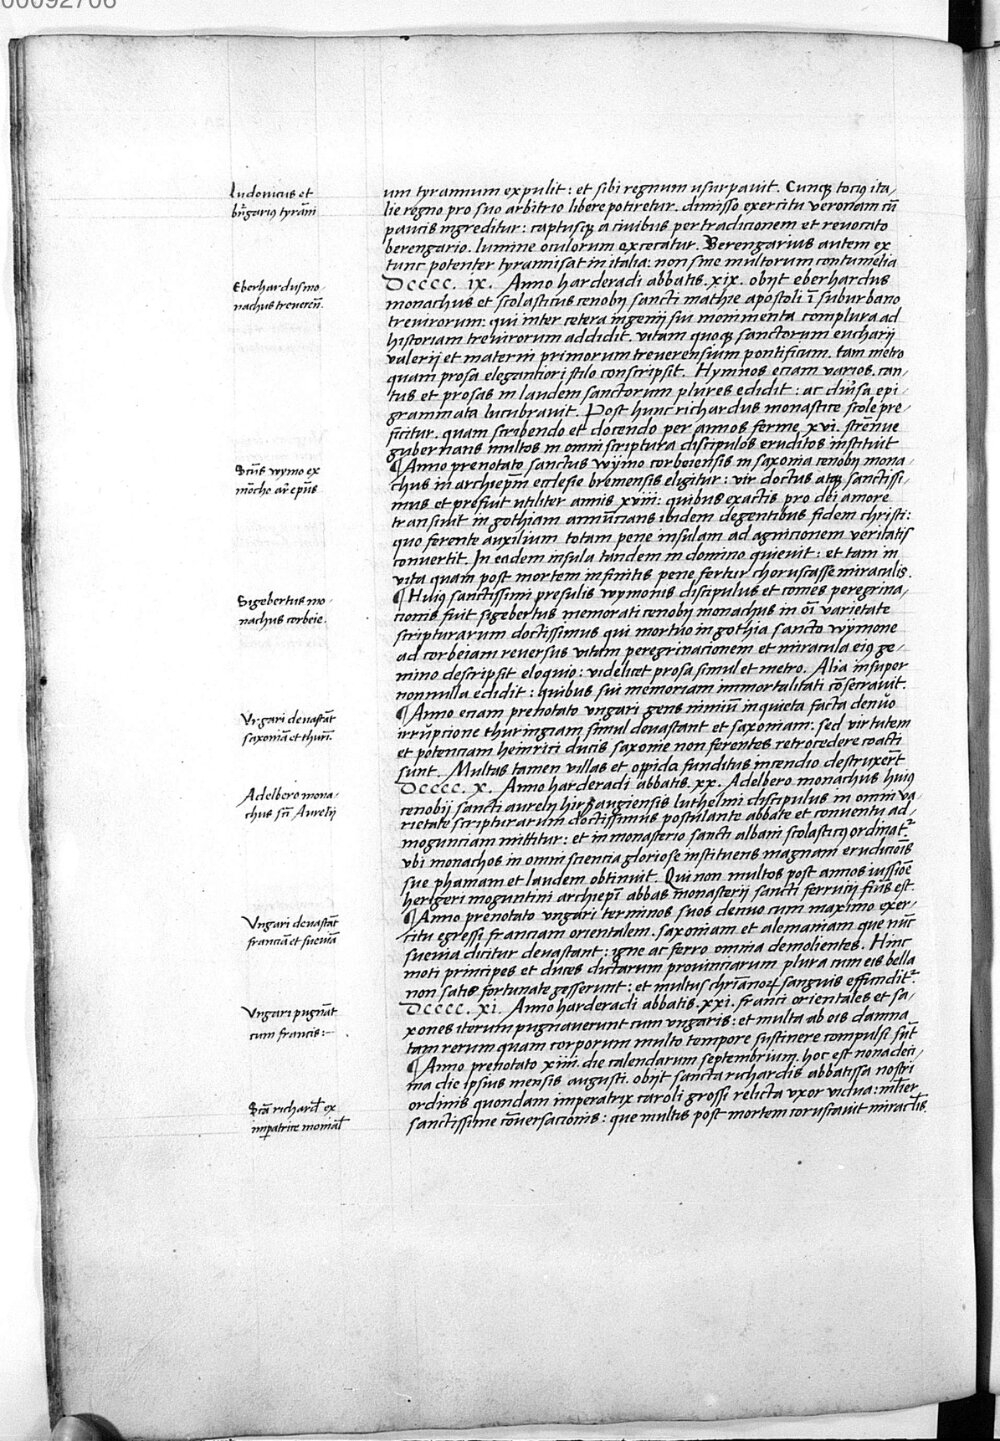 00092706
Ludouicus et
bngariꝰ tyrāni
um tyrannum expulit: et sibi regnum usurpauit. Cunqꝫ tociꝰ ita/
lie regno pro suo arbitrio libere potiretur. dimisso exercitu veronam cū
paucis ingreditur: captusqꝫ a ciuibus per tradicionem et reuocato
berengario. lumine oculorum excecatur. Berengarius autem ex
tunc potenter tyrannisat in italia: non sine multorum contumelia
Eberhardus mo-
nachus treueren̄.
DCCCC. ix. Anno harderadi abbatis. xix. obijt eberhardus
monachus et scolasticus cenobij sancti mathie apostoli ī suburbano
treuirorum: qui inter cetera ingenij sui monimenta complura ad
historiam treuirorum addidit. vitam quoqꝫ sanctorum eucharij
valerij et materni primorum treuerensium pontificum. tam metro
quam prosa elegantiori stilo conscripsit. Hymnos eciam varios. can/
tus et prosas in laudem sanctorum plures edidit: ac diūsa epi/
grammata lucubrauit. Post hunc richardus monastice scole pre/
ficitur. quam scribendo et docendo per annos ferme xvi. strēnue
gubernans multos in omni scriptura discipulos eruditos instituit
Sctūs wymo ex
mōcho ar̄epūs
¶ Anno prenotato sanctus wijmo corbeiensis in saxonia cenobij mona/
chus in archiepm̄ ecclesie bremensis eligitur: vir doctus atqꝫ sanctissi/
mus et prefuit utiliter annis xviii: quibus exactis pro dei amore
transiuit in gothiam annūcians ibidem degentibus fidem christi:
quo ferente auxilium totam pene insulam ad agnicionem veritatis
conuertit. In eadem insula tandem in domino quieuit: et tam in
vita quam post mortem infinitis pene fertur choruscasse miraculis.
Sigebertus mo-
nachus corbeie.
¶ Huiꝰ sanctissimi presulis wymonis discipulus et comes peregrina/
cionis fuit sigebertus memorati cenobij monachus in oī varietate
scripturarum doctissimus qui mortuo in gothia sancto wijmone
ad corbeiam reuersus vitam peregrinacionem et miracula eiꝰ ge/
mino descripsit eloquio: videlicet prosa simul et metro. Alia insuper
nonnulla edidit: quibus sui memoriam immortalitati cōsecrauit.
Vngari deuastāt
saxoniā et thuri.
¶ Anno eciam prenotato vngari gens nimiū inquieta facta denuo
irrupcione thuringiam simul deuastant et saxoniam: sed virtutem
et potenciam heinrici ducis saxonie non ferentes retrocedere coacti
sunt. Multas tamen villas et oppida funditus incendio destruxerūt
Adelbero mona-
chus sctī Aurelij
DCCCC. x. Anno harderadi abbatis. xx. Adelbero monachus huiꝰ
cenobij sancti aurelij hirsaugiensis luthelmi discipulus in omni va/
rietate scripturarum doctissimus postulante abbate et conuentu ad/
mogunciam mittitur: et in monasterio sancti albani scolasticꝰ ordinatᷣ.
vbi monachos in omni sciencia gloriose instituens magnam erudicionis
sue phamam et laudem obtinuit. Qui non multos post annos iussione
herigeri moguntini archiepī abbas monasterij sancti ferrutij fius̄ est.
Vngari deuastāt
franciā et sueuiā
¶ Anno prenotato vngari terminos suos denuo cum maximo exer/
citu egressi franciam orientalem. saxoniam et alemaniam que nūc
sueuia dicitur deuastant: igne ac ferro omnia demolientes. Hinc
moti principes et duces dictarum prouinciarum plura cum eis bella
non satis fortunate gesserunt: et multus chrīanorꝝ sanguis effunditᷣ.
Vngari pugnāt
cum francis:-
DCCCC. xi. Anno harderadi abbatis. xxi. franci orientales et sa/
xones iterum pugnauerunt cum vngaris: et multa ab eis damna
tam rerum quam corporum multo tempore sustinere compulsi sūt
Sctā richard̄ ex
imꝑatrice monial̄
¶ Anno prenotato xiiii. die calendarum septembrium. hoc est nonadeci/
ma die ipsius mensis augusti. obijt sancta richardis abbatissa nostri
ordinis quondam imperatrix caroli grossi relicta vxor vidua: mlīer
sanctissime cōuersacionis: que multis post mortem coruscauit miraclīs.